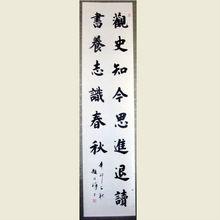 觀史知今思進退讀
書養志識春秋